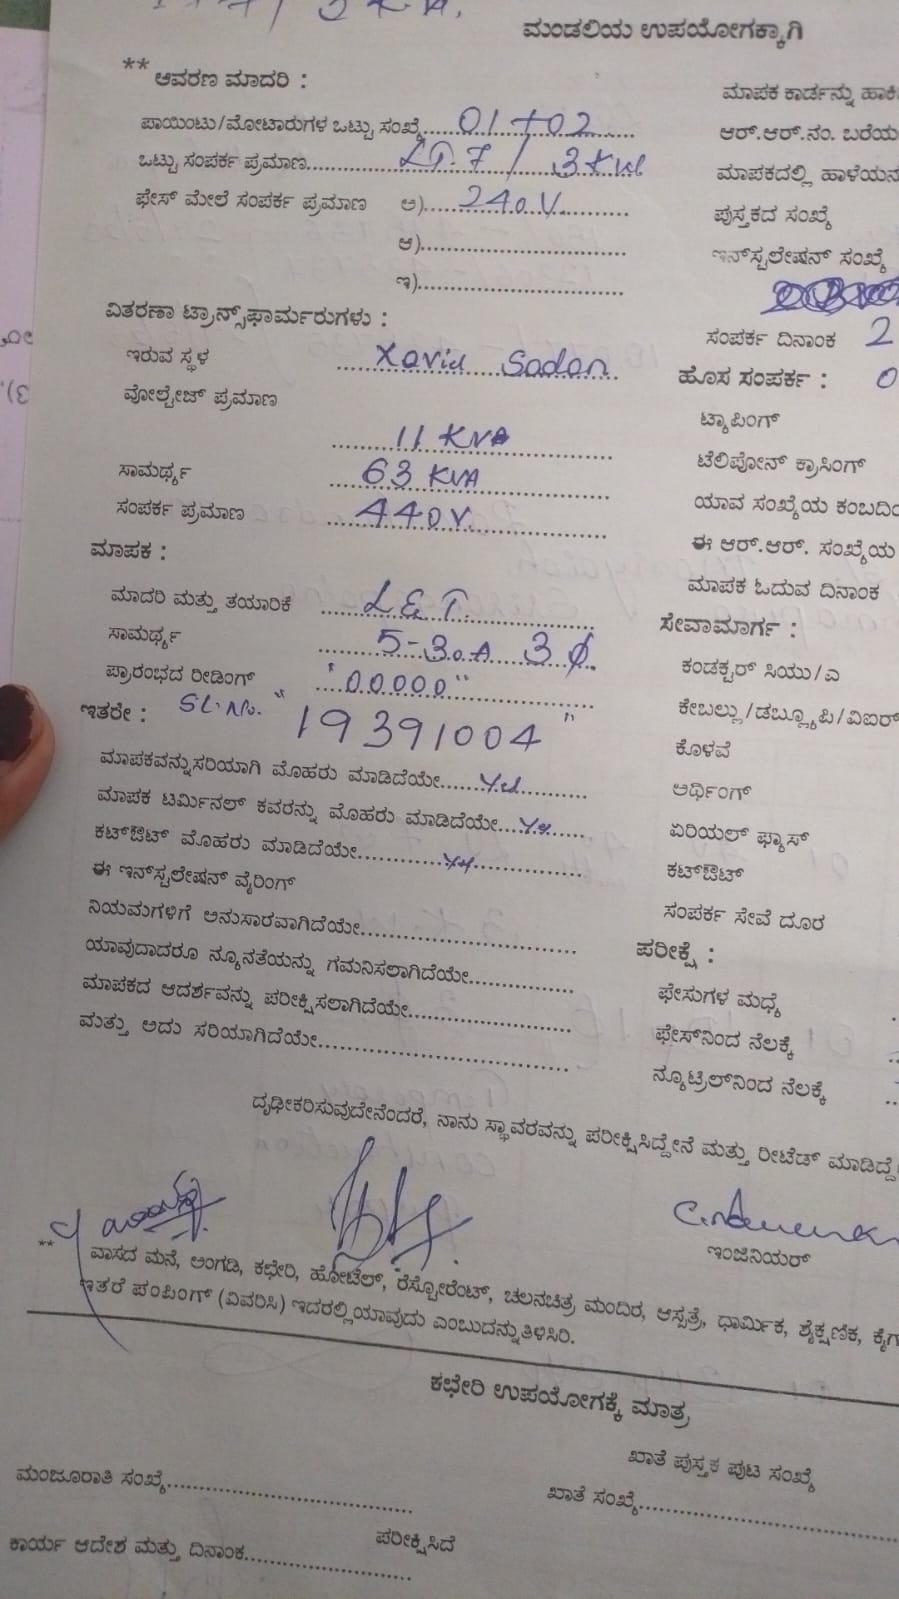 ಮಂಡಲಿಯ ಉಪಯೋಗಕ್ಕಾಗಿ
** ಆವರಣ ಮಾದರಿ :
ಪಾಯಿಂಟು/ಮೋಟಾರುಗಳ ಒಟ್ಟು ಸಂಖ್ಯೆ...... 01 + 02
ಒಟ್ಟು ಸಂಪರ್ಕ ಪ್ರಮಾಣ...... LT.7 / 3 KW
ಫೇಸ್ ಮೇಲೆ ಸಂಪರ್ಕ ಪ್ರಮಾಣ ಅ)...... 240 V
ಆ)......
ಇ)......
ವಿತರಣಾ ಟ್ರಾನ್ಸ್‌ಫಾರ್ಮರುಗಳು :
ಇರುವ ಸ್ಥಳ ...... Sadan
ವೋಲ್ಟೇಜ್ ಪ್ರಮಾಣ
...... 11 KVA
ಸಾಮರ್ಥ್ಯ ...... 63 KVA
ಸಂಪರ್ಕ ಪ್ರಮಾಣ ...... 440 V.
ಮಾಪಕ :
ಮಾದರಿ ಮತ್ತು ತಯಾರಿಕೆ ...... L & T.
ಸಾಮರ್ಥ್ಯ ...... 5-30 A 3 ϕ.
ಪ್ರಾರಂಭದ ರೀಡಿಂಗ್ ...... "00000"
ಇತರೇ : SL. No. " 19391004 "
ಮಾಪಕವನ್ನು ಸರಿಯಾಗಿ ಮೊಹರು ಮಾಡಿದೆಯೇ...... Yes
ಮಾಪಕ ಟರ್ಮಿನಲ್ ಕವರನ್ನು ಮೊಹರು ಮಾಡಿದೆಯೇ...... Yes
ಕಟ್‌ಔಟ್ ಮೊಹರು ಮಾಡಿದೆಯೇ...... Yes
ಈ ಇನ್‌ಸ್ಟಲೇಷನ್ ವೈರಿಂಗ್
ನಿಯಮಗಳಿಗೆ ಅನುಸಾರವಾಗಿದೆಯೇ......
ಯಾವುದಾದರೂ ನ್ಯೂನತೆಯನ್ನು ಗಮನಿಸಲಾಗಿದೆಯೇ......
ಮಾಪಕದ ಆದರ್ಶವನ್ನು ಪರೀಕ್ಷಿಸಲಾಗಿದೆಯೇ......
ಮತ್ತು ಅದು ಸರಿಯಾಗಿದೆಯೇ......
ಮಾಪಕ ಕಾರ್ಡನ್ನು
ಆರ್.ಆರ್.ನಂ. ಬರೆಯ
ಮಾಪಕದಲ್ಲಿ ಹಾಳೆಯನ
ಪುಸ್ತಕದ ಸಂಖ್ಯೆ
ಇನ್‌ಸ್ಟಲೇಷನ್ ಸಂಖ್ಯೆ
ಸಂಪರ್ಕ ದಿನಾಂಕ 2
ಹೊಸ ಸಂಪರ್ಕ : 0
ಟ್ಯಾಪಿಂಗ್
ಟೆಲಿಪೋನ್ ಕ್ರಾಸಿಂಗ್
ಯಾವ ಸಂಖ್ಯೆಯ ಕಂಬದಿಂ
ಈ ಆರ್.ಆರ್. ಸಂಖ್ಯೆಯ
ಮಾಪಕ ಓದುವ ದಿನಾಂಕ
ಸೇವಾಮಾರ್ಗ :
ಕಂಡಕ್ಟರ್ ಸಿಯು/ಎ
ಕೇಬಲ್ಲು/ಡಬ್ಲ್ಯೂಪಿ/ವಿಐರ್
ಕೊಳವೆ
ಅರ್ಥಿಂಗ್
ಏರಿಯಲ್ ಫ್ಯಾಸ್
ಕಟ್‌ಔಟ್
ಸಂಪರ್ಕ ಸೇವೆ ದೂರ
ಪರೀಕ್ಷೆ :
ಫೇಸುಗಳ ಮಧ್ಯೆ
ಫೇಸ್‌ನಿಂದ ನೆಲಕ್ಕೆ
ನ್ಯೂಟ್ರಿಲ್‌ನಿಂದ ನೆಲಕ್ಕೆ
ದೃಢೀಕರಿಸುವುದೇನೆಂದರೆ, ನಾನು ಸ್ಥಾವರವನ್ನು ಪರೀಕ್ಷಿಸಿದ್ದೇನೆ ಮತ್ತು ರೀಟೆಡ್ ಮಾಡಿದ್ದೆ
ಇಂಜಿನಿಯರ್
** ವಾಸದ ಮನೆ, ಅಂಗಡಿ, ಕಛೇರಿ, ಹೋಟೆಲ್, ರೆಸ್ಟೋರೆಂಟ್, ಚಲನಚಿತ್ರ ಮಂದಿರ, ಆಸ್ಪತ್ರೆ, ಧಾರ್ಮಿಕ, ಶೈಕ್ಷಣಿಕ, ಕೈಗ
ಇತರೆ ಪಂಪಿಂಗ್ (ವಿವರಿಸಿ) ಇದರಲ್ಲಿ ಯಾವುದು ಎಂಬುದನ್ನು ತಿಳಿಸಿರಿ.
ಕಛೇರಿ ಉಪಯೋಗಕ್ಕೆ ಮಾತ್ರ
ಖಾತೆ ಪುಸ್ತಕ ಪುಟ ಸಂಖ್ಯೆ
ಮಂಜೂರಾತಿ ಸಂಖ್ಯೆ...... ಖಾತೆ ಸಂಖ್ಯೆ......
ಪರೀಕ್ಷಿಸಿದೆ
ಕಾರ್ಯ ಆದೇಶ ಮತ್ತು ದಿನಾಂಕ......